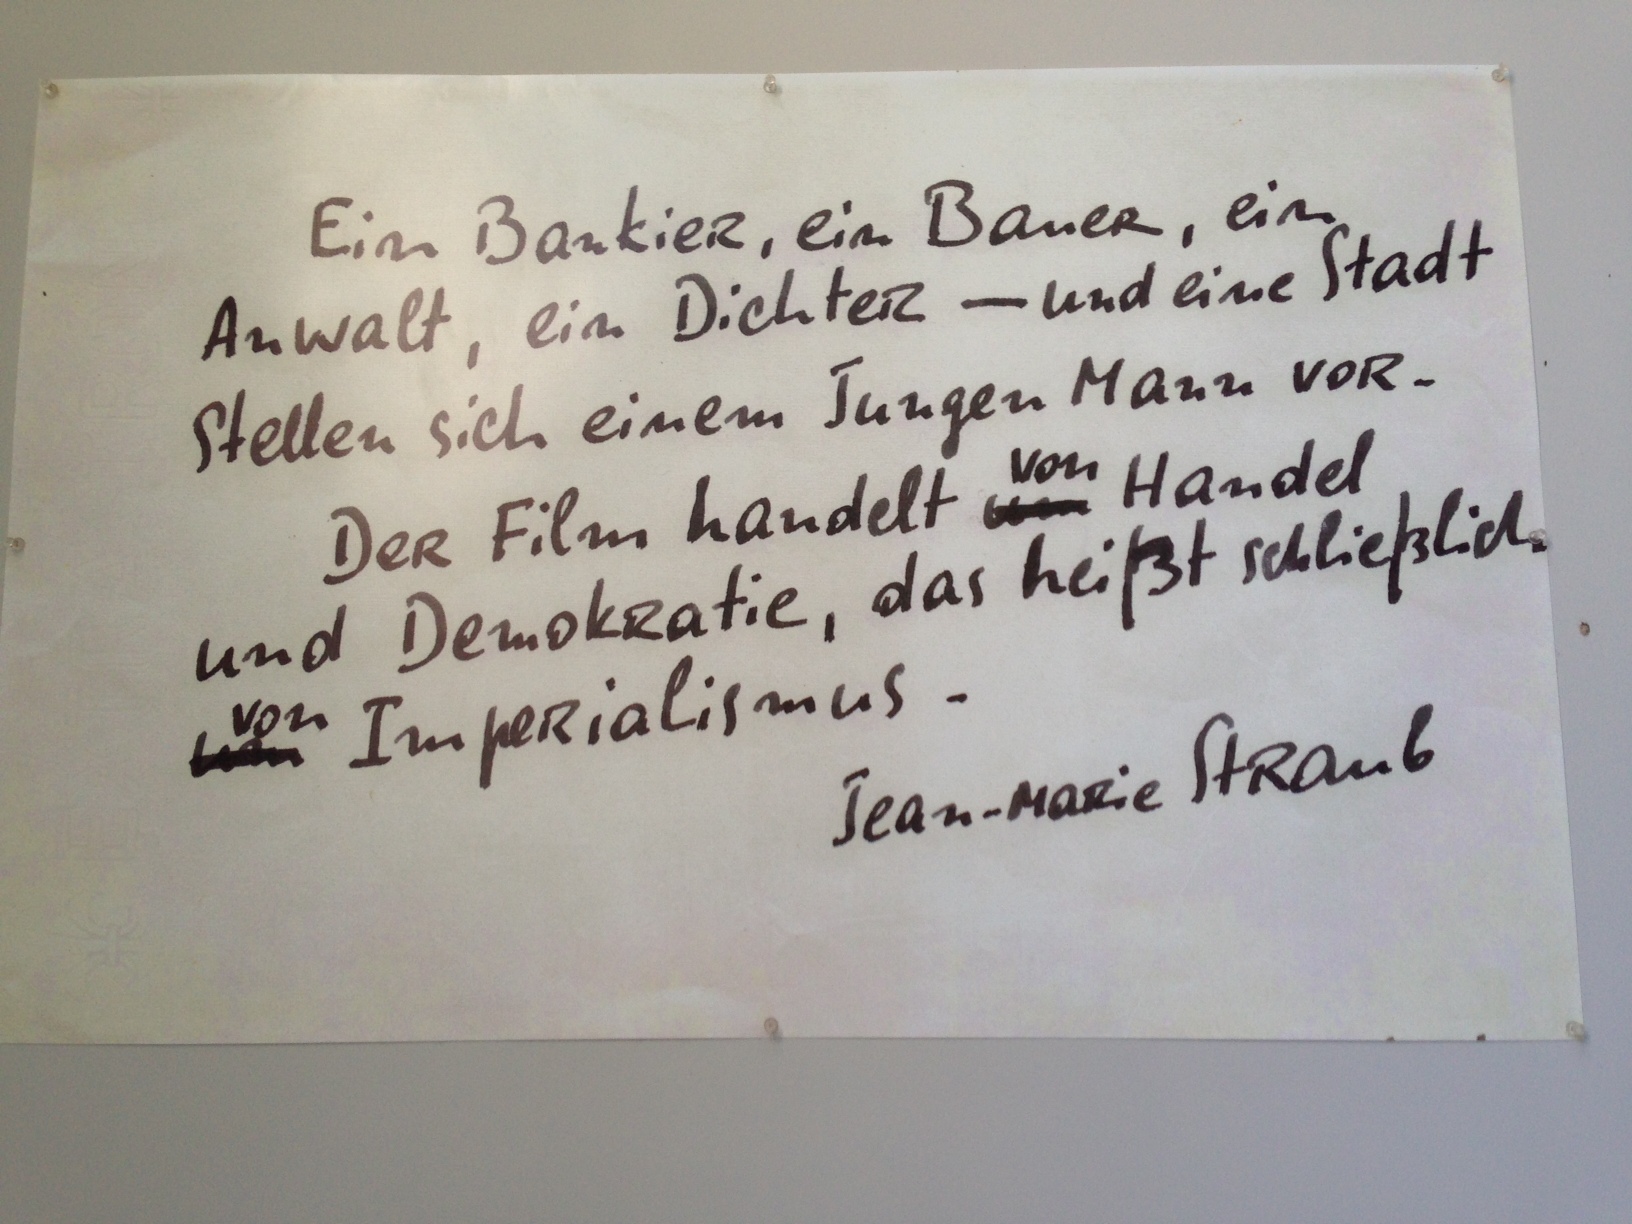 Ein Bankier, ein Bauer, ein
Anwalt, ein Dichter — und eine Stadt
stellen sich einem Jungen Mann vor.
Der Film handelt von Handel
und Demokratie, das heißt schließlich
von Imperialismus.
Jean-Marie Straub